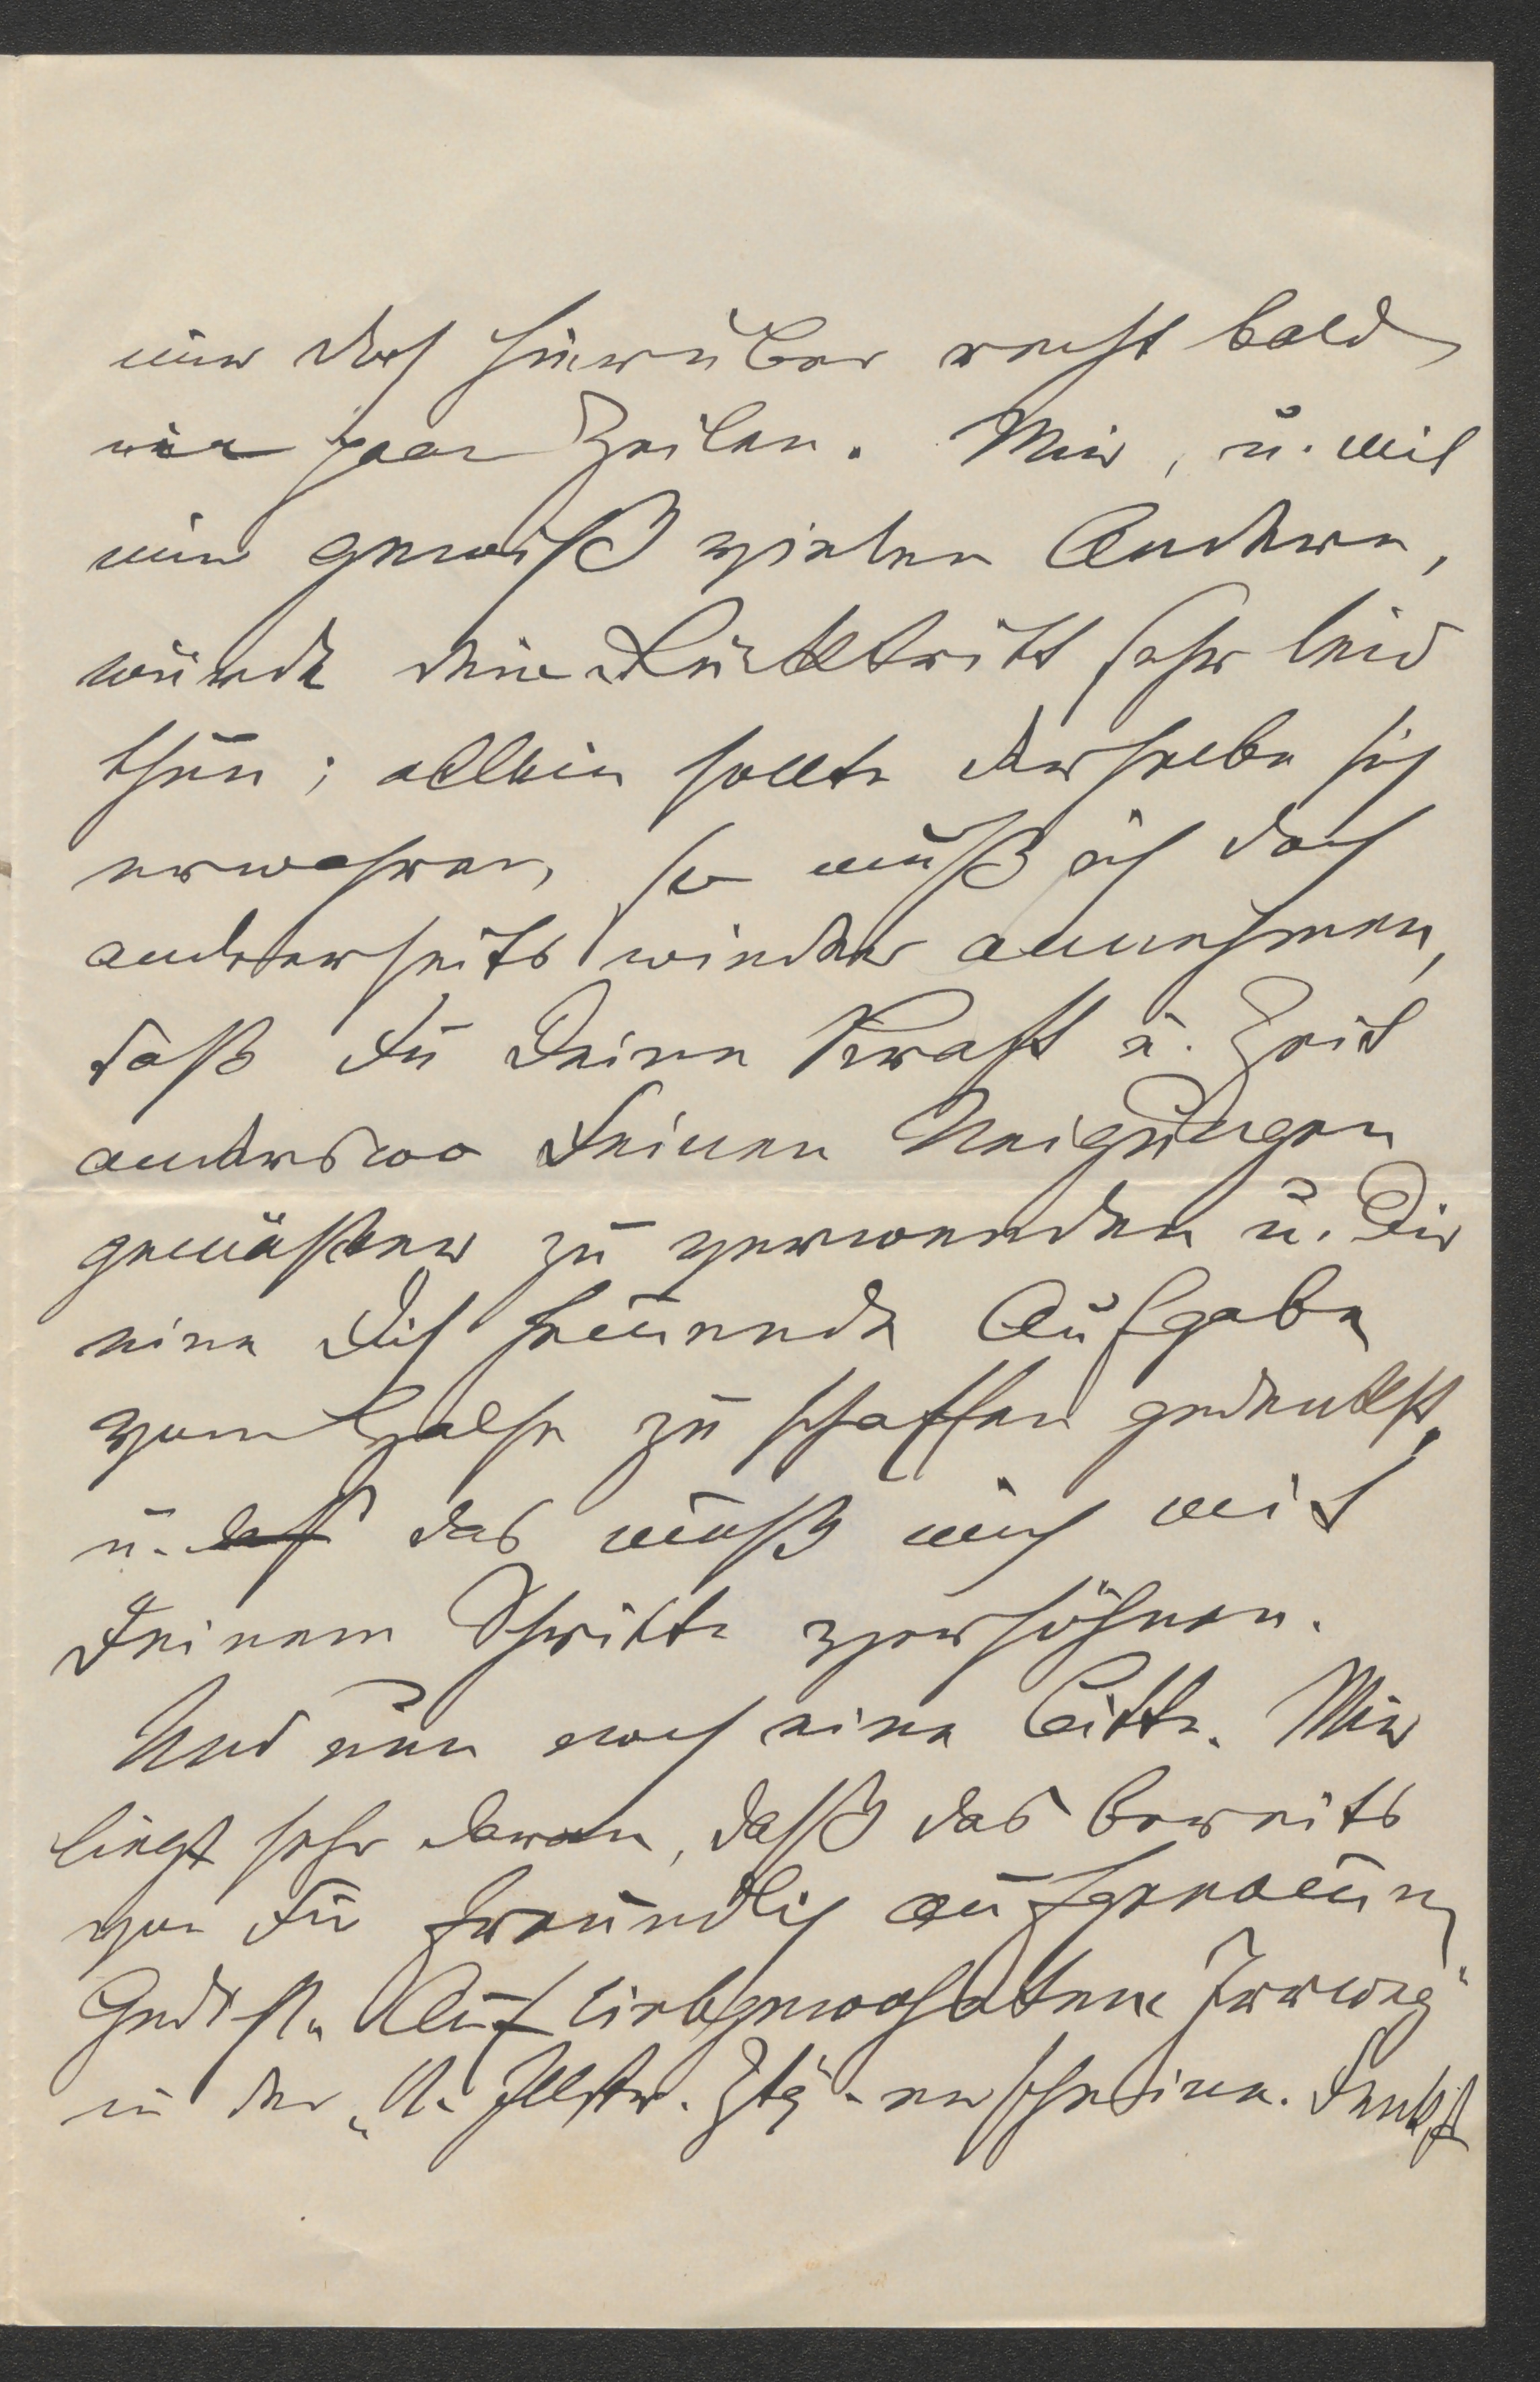 mir doch hierüber recht bald
ein paar Zeilen. Mir, u. mit
mir gewiß vielen Andern,
würde dein Rücktritt sehr leid
thun; allein sollte derselbe sich
erwahren, so muß ich doch
anderseits wieder annehmen,
daß Du Deine Kraft u. Zeit
anderswo Deinen Neigungen
gemäßer zu verwenden u. Dir
eine Dich hemmende Aufgabe
vom Halse zu schaffen gedenkst,
u. das muß mich mit
Deinem Schritte versöhnen.
Und nun noch eine Bitte. Mir
liegt sehr daran, daß das bereits
von Dir freundlich aufgenomne
Gedicht „Auf liebgewohntem Irrweg"
in der „N. Illstr. Ztg" erscheine. Denkst